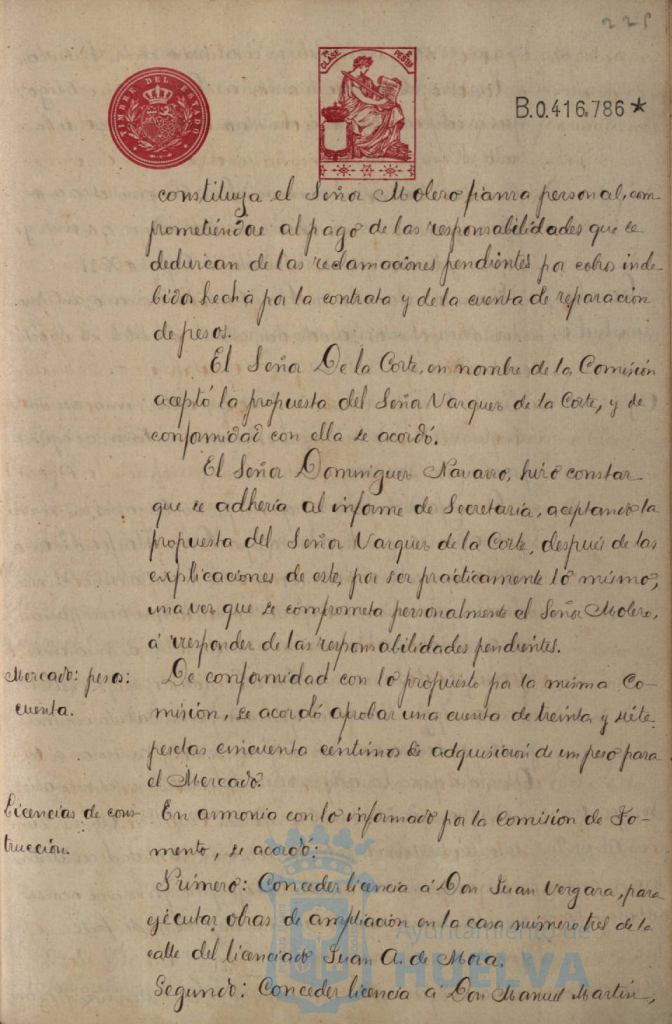 225
TIMBRE DEL ESTADO
7ª CLASE
2 PESETAS
B.0.416.786*
constituya el Señor Molero fianza personal, com-
prometiéndose al pago de las responsabilidades que se
deduzcan de las reclamaciones pendientes por cobro inde-
bido hecha por la contrata y de la cuenta de reparación
de pesos.
El Señor De la Corte, en nombre de la Comisión
aceptó la propuesta del Señor Vazquez de la Corte, y de
conformidad con ella se acordó.
El Señor Dominguez Navarro, hizo constar
que se adhería al informe de Secretaría, aceptando la
propuesta del Señor Vazquez de la Corte, después de las
explicaciones de este, por ser prácticamente lo mismo,
una vez que se comprometa personalmente el Señor Molero,
á responder de las responsabilidades pendientes.
Mercado: pesos:
cuenta.
De conformidad con lo propuesto por la misma Co-
misión, se acordó aprobar una cuenta de treinta y siete
pesetas cincuenta céntimos de adquisición de un peso para
el Mercado.
Licencias de cons-
trucción.
En armonía con lo informado por la Comisión de Fo-
mento, se acordó:
Primero: Conceder licencia á Don Juan Vergara, para
ejecutar obras de ampliación en la casa número tres de la
calle del licenciado Juan A. de Mora.
Segundo: Conceder licencia á Don Manuel Martín,
Ayuntamiento de
HUELVA